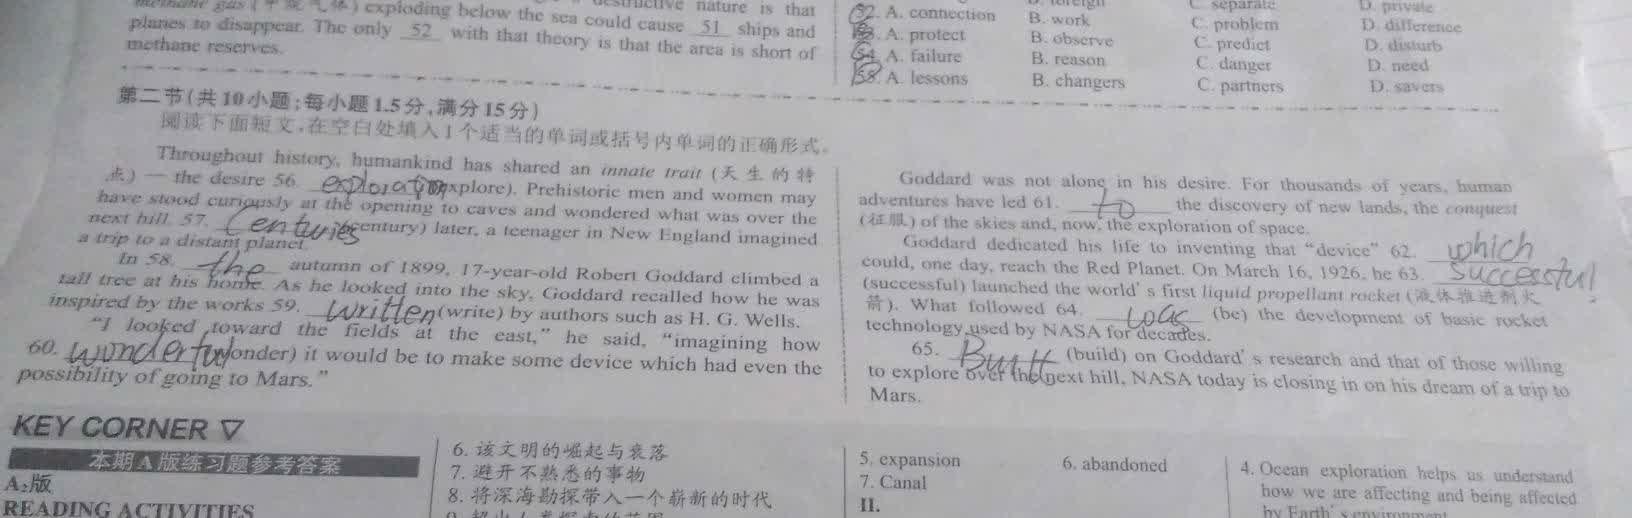 methane gas (甲烷气体) exploding below the sea could cause 51 ships and
destructive nature is that
planes to disappear. The only 52 with that theory is that the area is short of
methane reserves.
B. foreign C. separate D. private
52. A. connection B. work C. problem D. difference
53. A. protect B. observe C. predict D. disturb
54. A. failure B. reason C. danger D. need
55. A. lessons B. changers C. partners D. savers
第二节(共10小题;每小题1.5分,满分15分)
阅读下面短文,在空白处填入1个适当的单词或括号内单词的正确形式。
Throughout history, humankind has shared an innate trait (天生的特
点) — the desire 56. exploration (explore). Prehistoric men and women may
have stood curiously at the opening to caves and wondered what was over the
next hill. 57. Centuries (century) later, a teenager in New England imagined
a trip to a distant planet.
In 58. the autumn of 1899, 17-year-old Robert Goddard climbed a
tall tree at his home. As he looked into the sky, Goddard recalled how he was
inspired by the works 59. written (write) by authors such as H. G. Wells.
"I looked toward the fields at the east," he said, "imagining how
60. wonderful (wonder) it would be to make some device which had even the
possibility of going to Mars."
Goddard was not alone in his desire. For thousands of years, human
adventures have led 61. to the discovery of new lands, the conquest
(征服) of the skies and, now, the exploration of space.
Goddard dedicated his life to inventing that "device" 62. which
could, one day, reach the Red Planet. On March 16, 1926, he 63. successful
(successful) launched the world's first liquid propellant rocket (液体推进剂火
箭). What followed 64. was (be) the development of basic rocket
technology used by NASA for decades.
65. Built (build) on Goddard's research and that of those willing
to explore over the next hill, NASA today is closing in on his dream of a trip to
Mars.
KEY CORNER ▽
本期A版练习题参考答案
A₂版
READING ACTIVITIES
6. 该文明的崛起与衰落
7. 避开不熟悉的事物
8. 将深海勘探带入一个崭新的时代
5. expansion 6. abandoned
7. Canal
II.
4. Ocean exploration helps us understand
how we are affecting and being affected
by Earth's environment